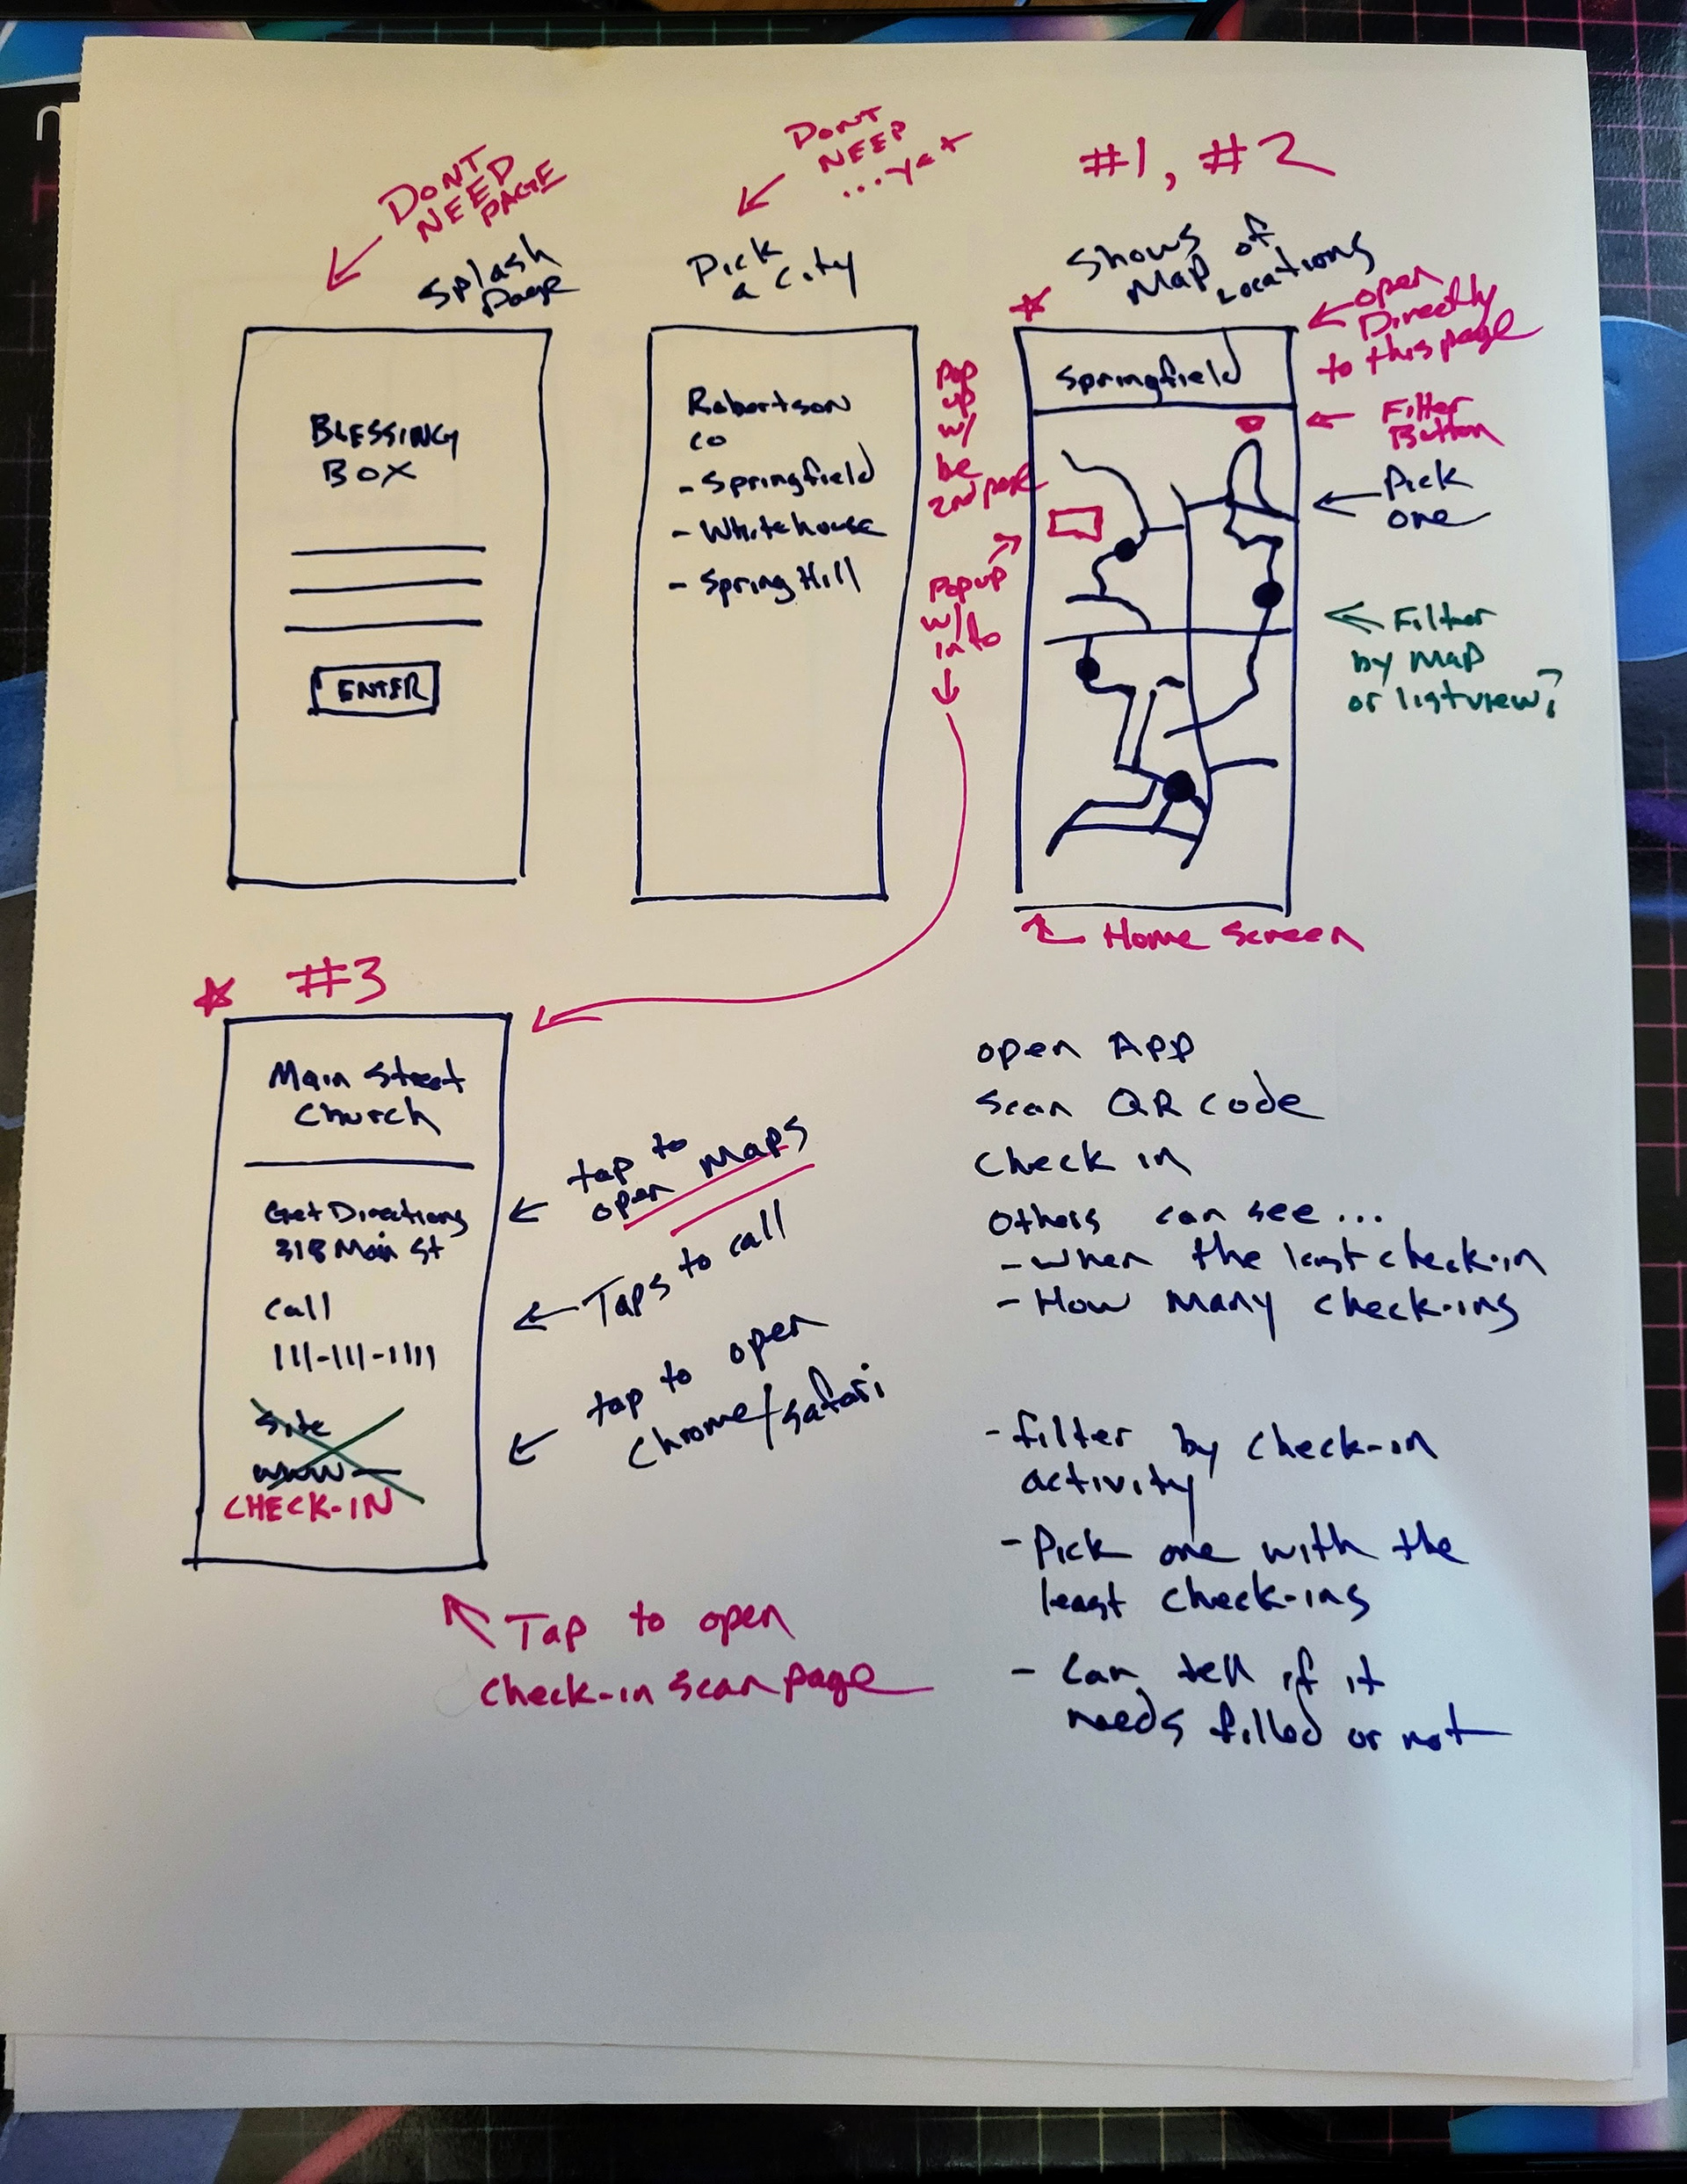 DONT
NEED
PAGE
Splash
Page
BLESSING
BOX
ENTER
DONT
NEED
...yet
Pick
a City
Robertson
co
- Springfield
- Whitehouse
- Spring Hill
#1, #2
Shows
Map of
Locations
open
Directly
to this page
Springfield
Filter
Button
Pick
one
Filter
by Map
or listview?
Pop
up
w/
be
2nd page
Popup
w/
info
Home Screen
#3
Main Street
Church
Get Directions
318 Main St
Call
111-111-1111
Site
www
CHECK-IN
tap to
open Maps
Taps to call
tap to open
Chrome/Safari
Tap to open
Check-in scan page
open App
Scan QR code
Check in
Others can see...
- when the last check-in
- How many check-ins
- filter by check-in
activity
- Pick one with the
least check-ins
- Can tell if it
needs filled or not